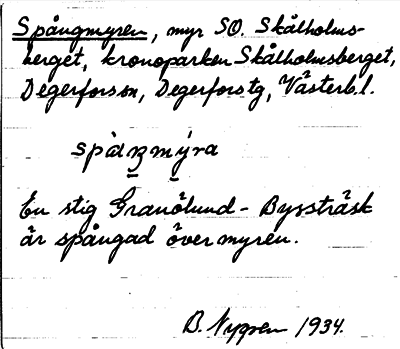 Spångmyren, myr SO. Skålholms-
berget, kronoparken Skålholmsberget,
Degerfors sn, Degerfors tg, Västerb. l.
spåŋmýra
En stig Granölund - Bysträsk
är spångad över myren.
B. Nygren 1934.